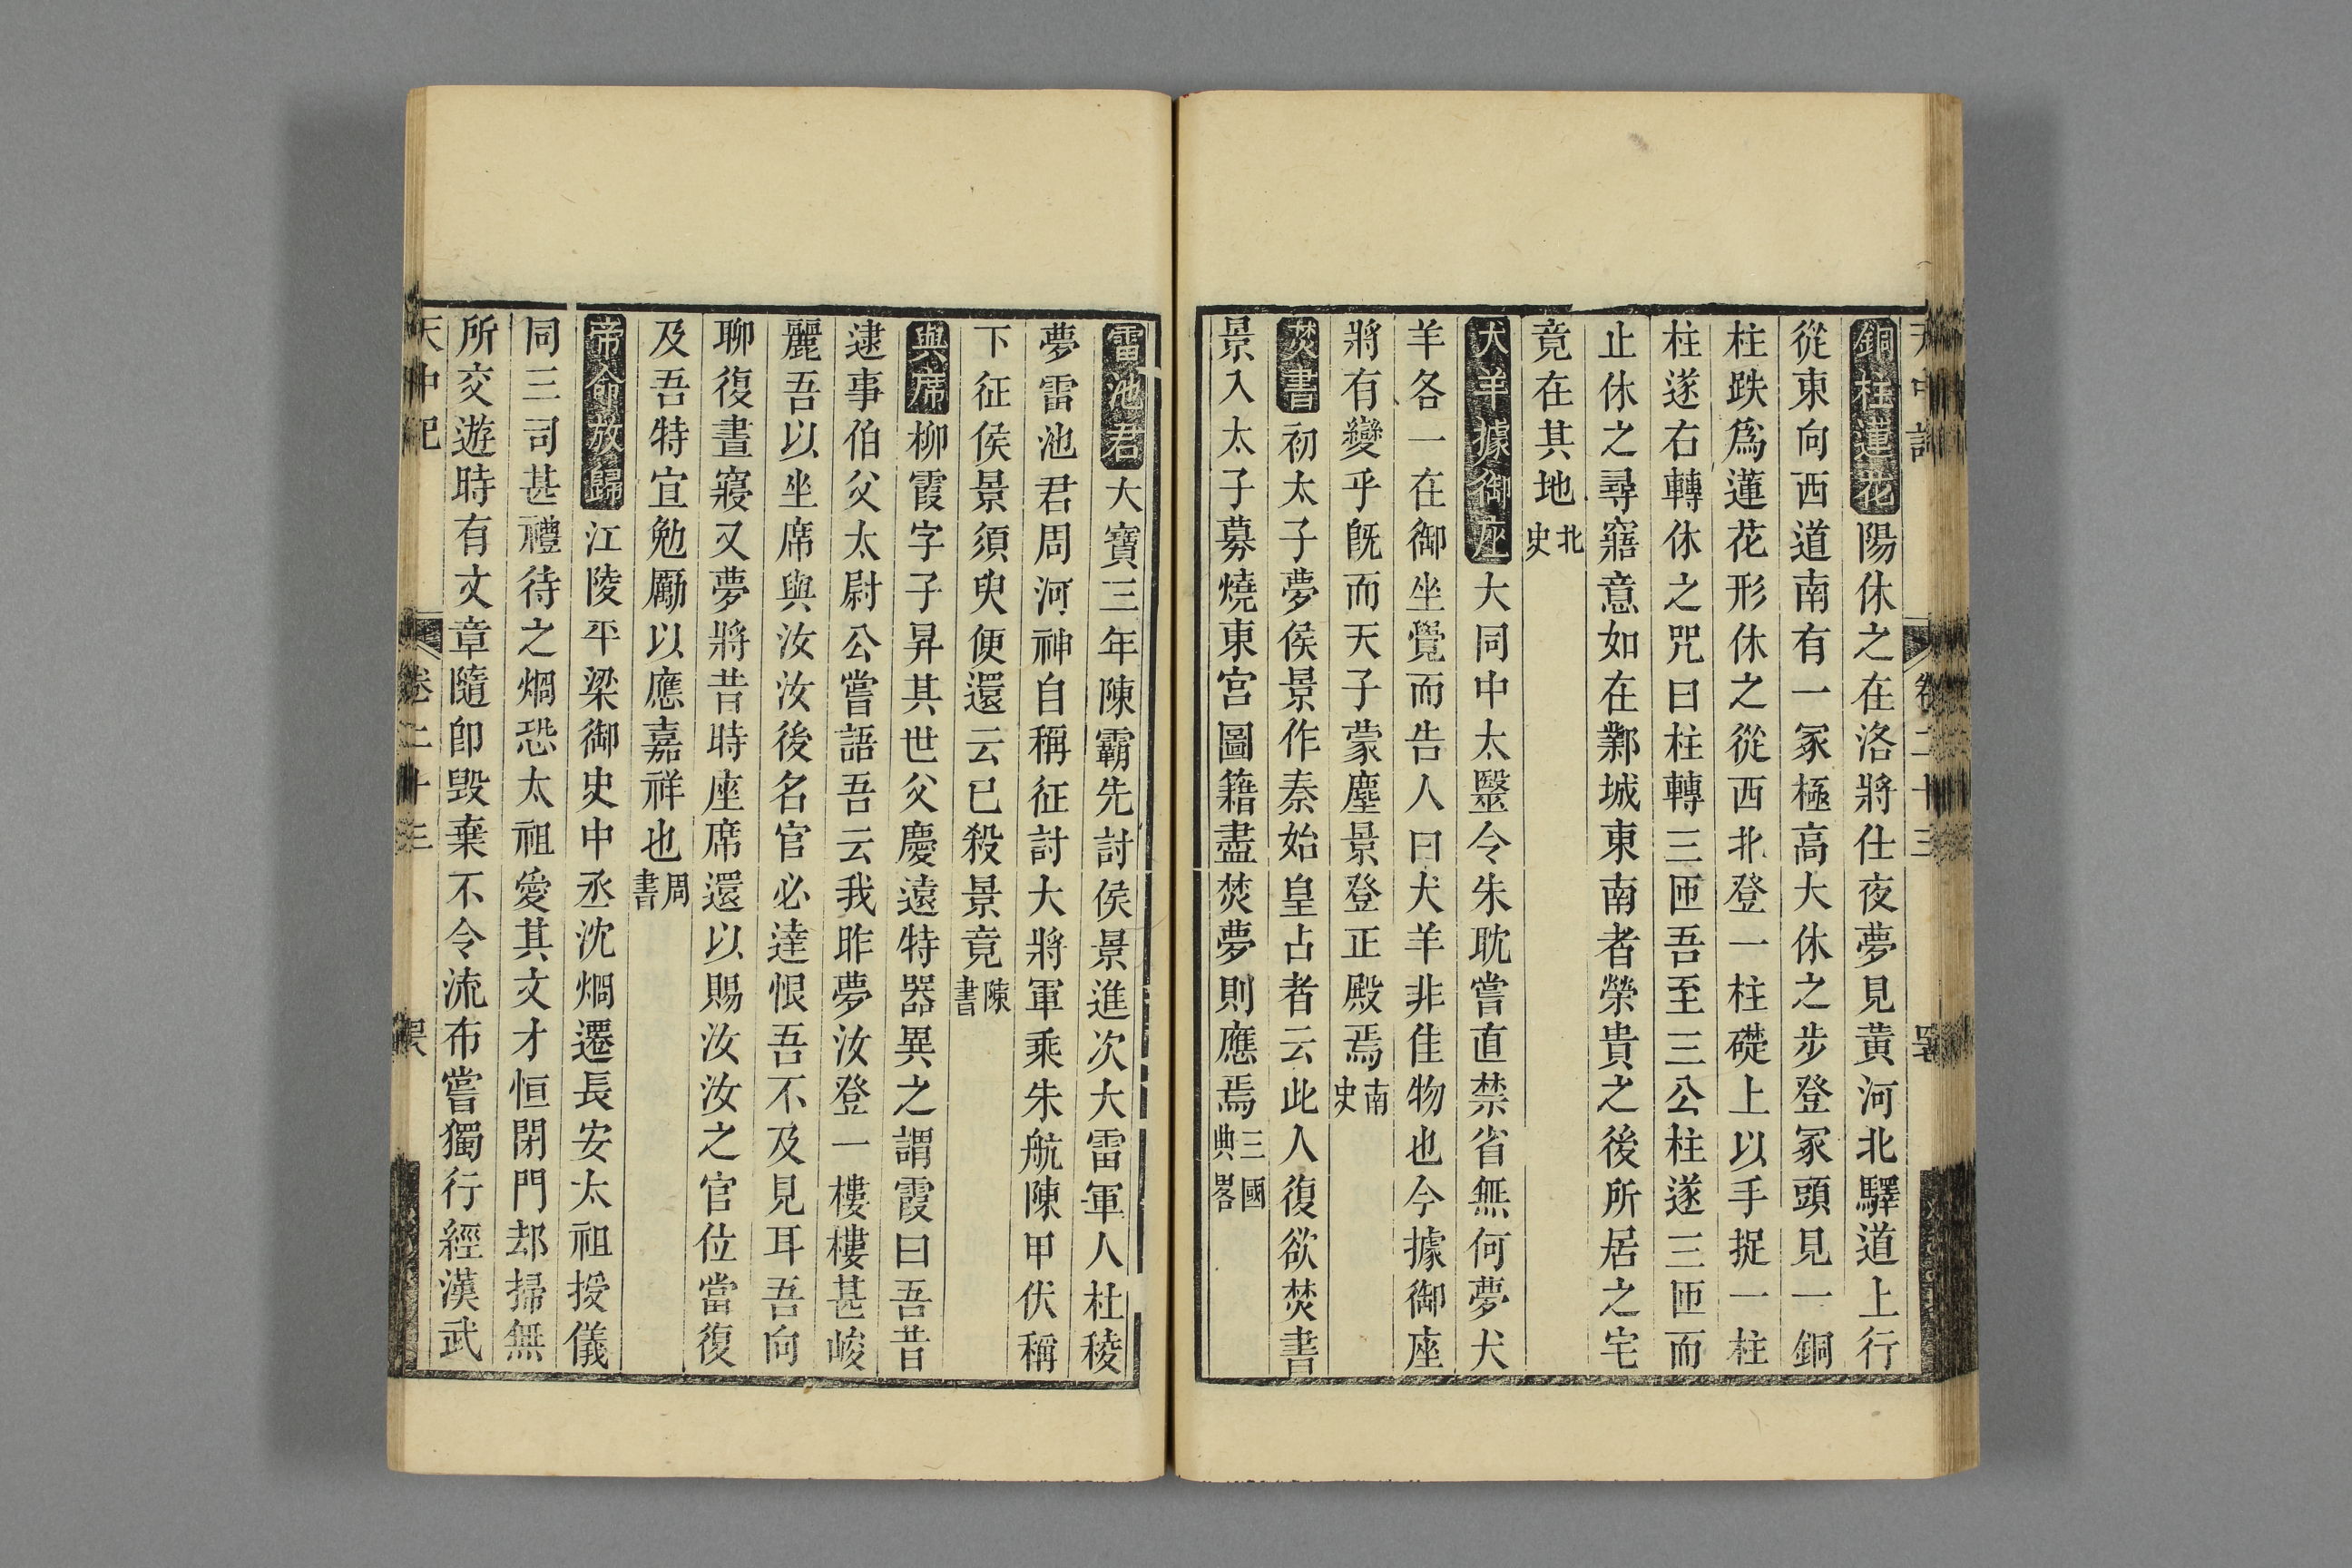 銅柱蓮花陽休之在洛將仕夜夢見黃河北驛道上行
從東向西道南有一冢極高大休之步登冢頭見一銅
柱趺爲蓮花形休之從西北登一柱礎上以手捉一柱
柱遂右轉休之咒曰柱轉三匝吾至三公柱遂三匝而
止休之尋寤意如在鄴城東南者榮貴之後所居之宅
竟在其地北史
犬羊據御座大同中太醫令朱耽嘗直禁省無何夢犬
羊各一在御坐覺而告人曰犬羊非佳物也今據御座
將有變乎旣而天子蒙塵景登正殿焉南史
焚書初太子夢侯景作秦始皇占者云此人復欲焚書
景入太子募燒東宮圖籍盡焚夢則應焉三國典畧
雷池君大寶三年陳霸先討侯景進次大雷軍人杜稜
夢雷池君周河神自稱征討大將軍乘朱航陳甲仗稱
下征侯景須臾便還云已殺景竟陳書
與席柳霞字子昇其世父慶遠特器異之謂霞曰吾昔
逮事伯父太尉公嘗語吾云我昨夢汝登一樓樓甚峻
麗吾以坐席與汝汝後名官必達恨吾不及見耳吾向
聊復晝寢又夢將昔時座席還以賜汝汝之官位當復
及吾特宜勉勵以應嘉祥也周書
帝命放歸江陵平梁御史中丞沈烱遷長安太祖授儀
同三司甚禮待之烱恐太祖愛其文才恒閉門却掃無
所交遊時有文章隨卽毀棄不令流布嘗獨行經漢武
天中記 卷二十三